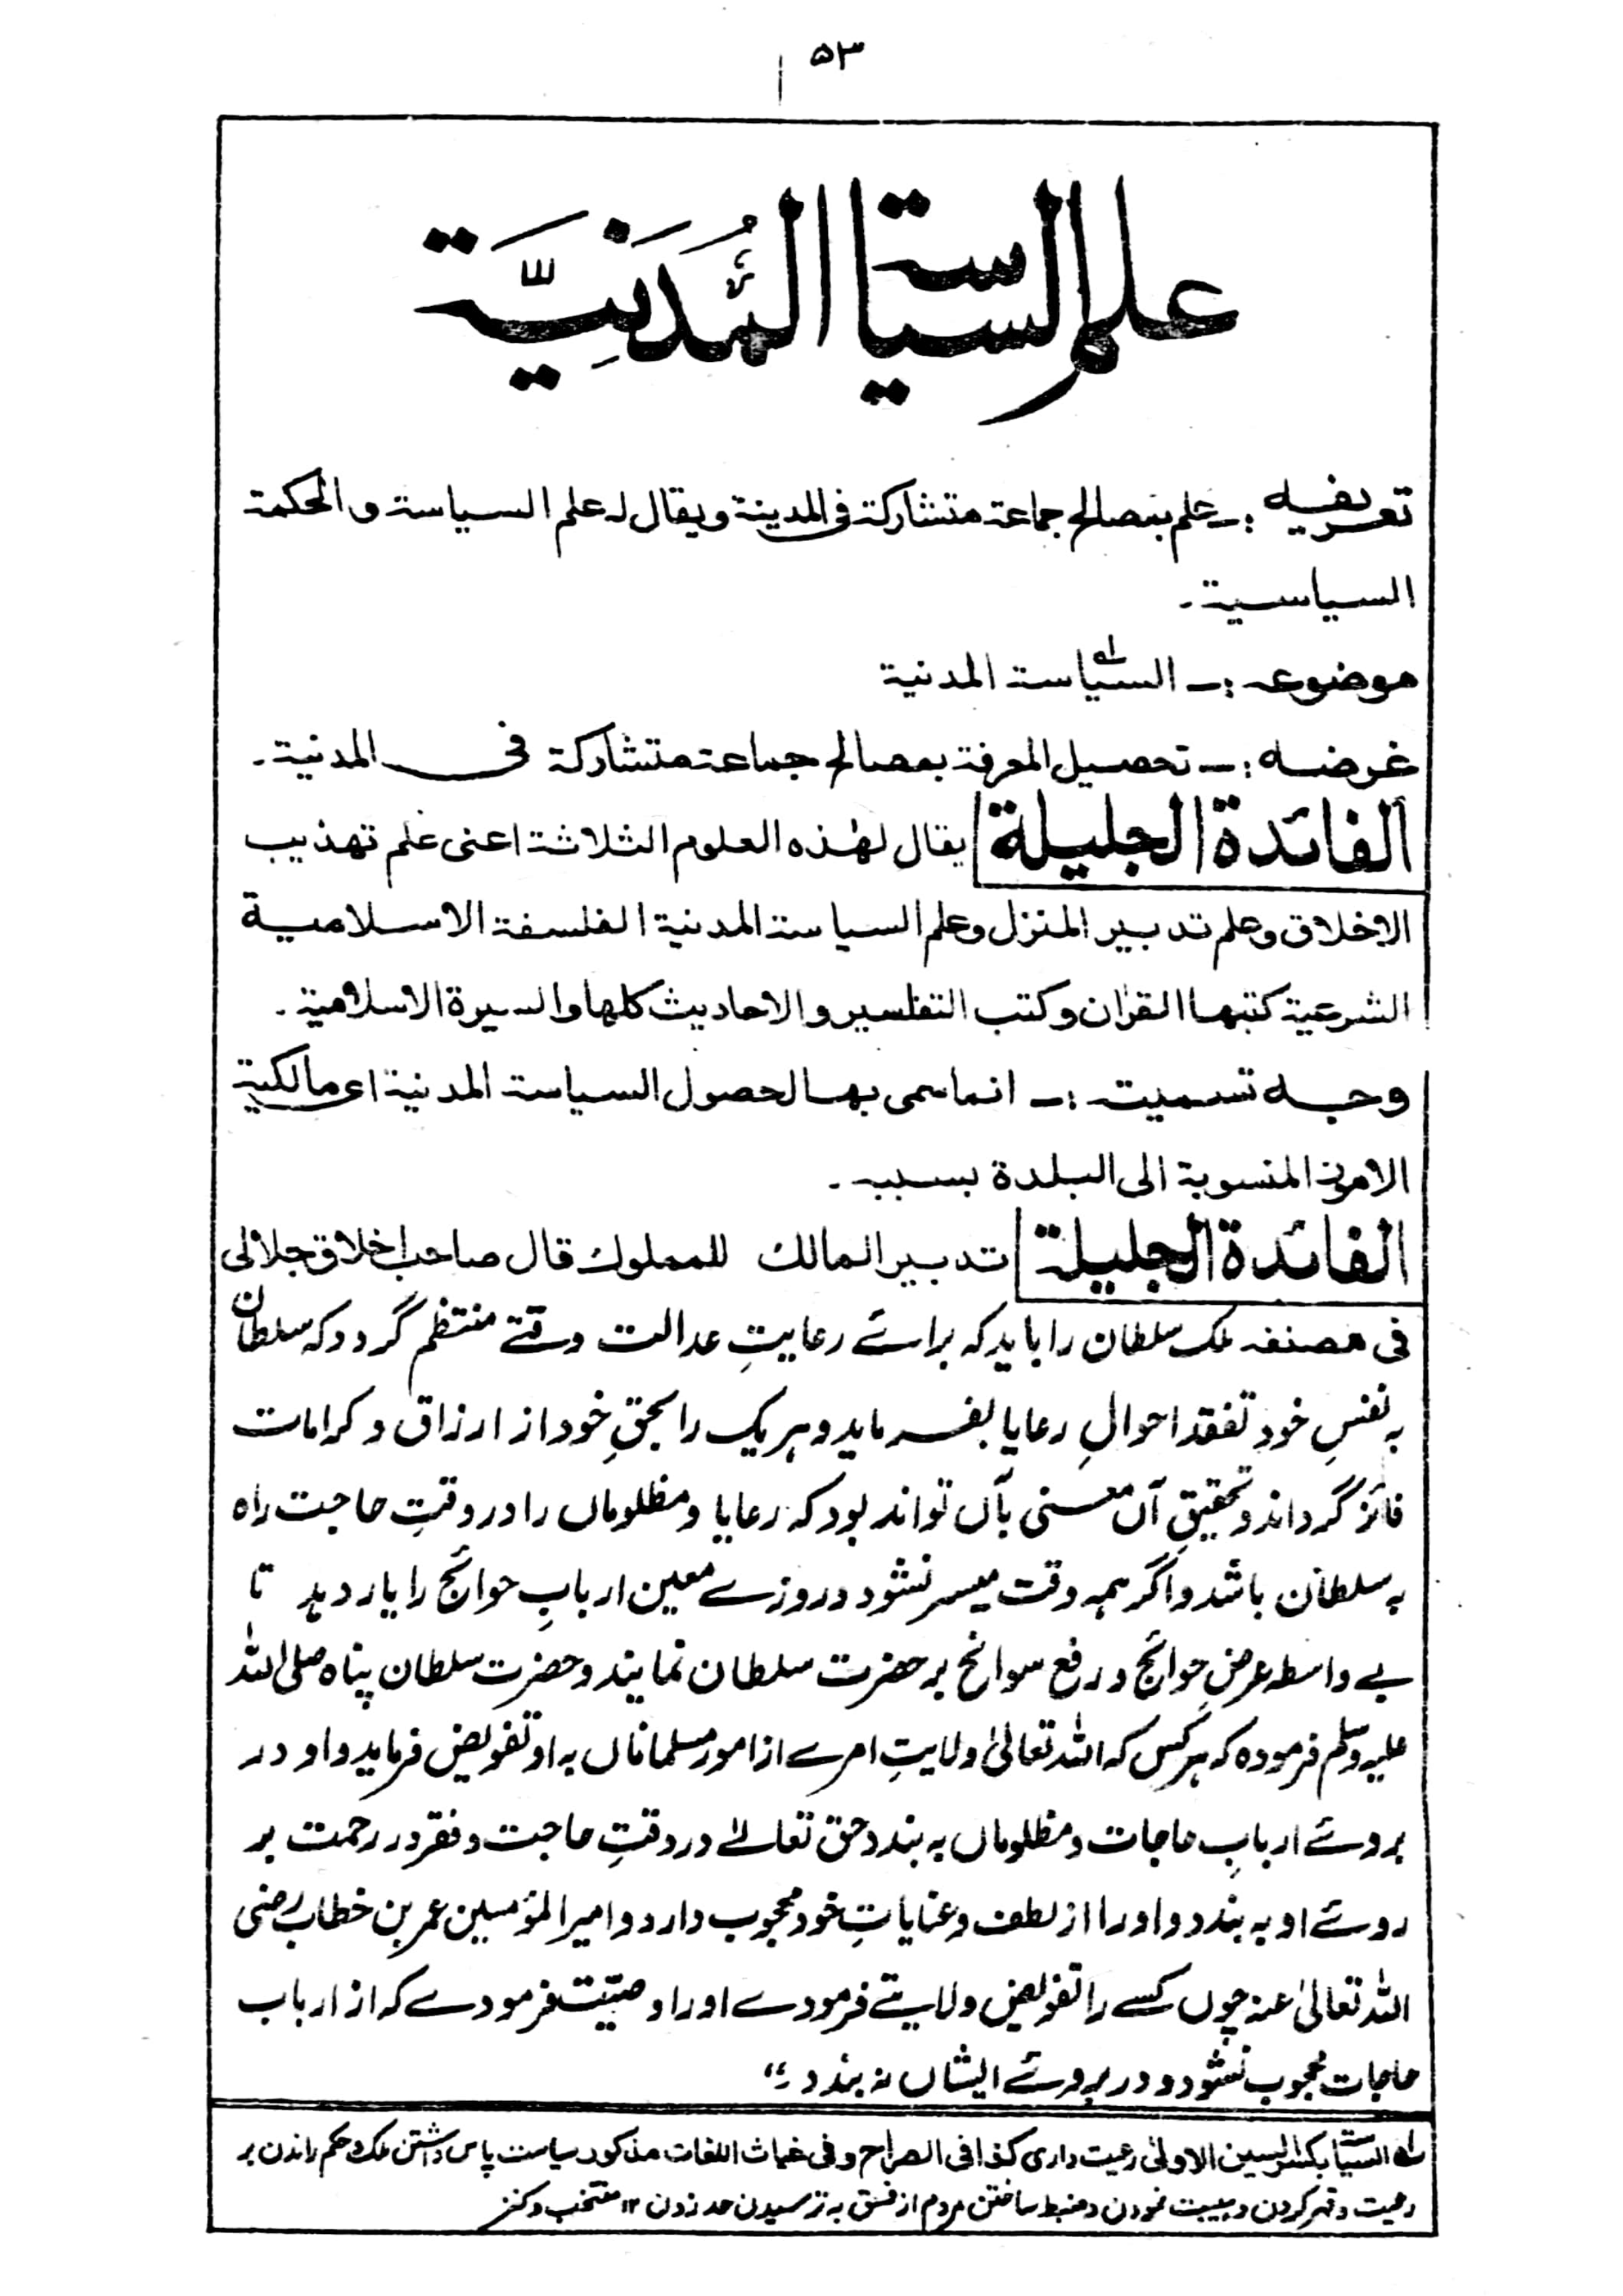 ۵۳
علم السیاسة المُدَنِیَّة
تعریفه :۔ علم بمصالح جماعة متشارکة فی المدینة ویقال له علم السیاسة والحکمة
السیاسیة۔
موضوعه :۔ السیاسة المدنیة
غرضه :۔ تحصیل المعرفة بمصالح جماعة متشارکة فی المدنیة۔
الفائدة الجلیلة یقال لهٰذه العلوم الثلاثة اعنی علم تهذیب
الاخلاق وعلم تدبیر المنزل وعلم السیاسة المدنیة الفلسفة الاسلامیة
الشرعیة کتبها القراٰن وکتب التفاسیر والاحادیث کلها والسیرة الاسلامیة۔
وجه تسمیت :۔ انما سمی بها لحصول السیاسة المدنیة ای مالکیة
الامر المنسوبة الی البلدة بسببه۔
الفائدة الجلیلة تدبیر الممالک للمملوک قال صاحب اخلاق جلالی
فی مصنفه ملک سلطان را باید که برائے رعایتِ عدالت وقتے منتظم گردد که سلطان
به نفسِ خود تفقد احوالِ رعایا بفرماید وہر یک را بحقِ خود از ارزاق و کرامات
فائز گرداند و تحقیقِ آن معنی بآں تواند بود که رعایا و مظلوماں را در وقتِ حاجت راه
به سلطان باشد و اگر ہمه وقت میسر نشود در روزے معین اربابِ حوائج را بار دہد تا
بے واسطه عرضِ حوائج و رفع سوانح بر حضرت سلطان نمایند و حضرت سلطان پناه صلی الله
علیه وسلم فرموده که ہر کس که الله تعالیٰ ولایتِ امرے از امور مسلماناں به او تفویض فرماید و او در
بروئے اربابِ حاجات و مظلوماں به بندد حق تعالےٰ در وقتِ حاجت و فقر در رحمت بر
روئے او به بندد و او را از لطف و عنایاتِ خود محجوب دارد و امیر المؤمنین عمر بن خطاب رضی
الله تعالیٰ عنه چوں کسے را تفویض ولایتے فرمودے او را وصیّت فرمودے که از ارباب
حاجات محجوب نشود و در بروئے ایشاں نه بندد ؛“
له السیاسة بکسر السین الاولیٰ رعیت داری کذا فی الصراح و فی غیاث اللغات مذکور سیاست پاس داشتن ملک و حکم راندن بر
رعیت و قهر کردن و ہیبت نمودن و ضبط ساختن مردم از فسق به ترسیدن حد زدن ۱۲ منتخب و کنز